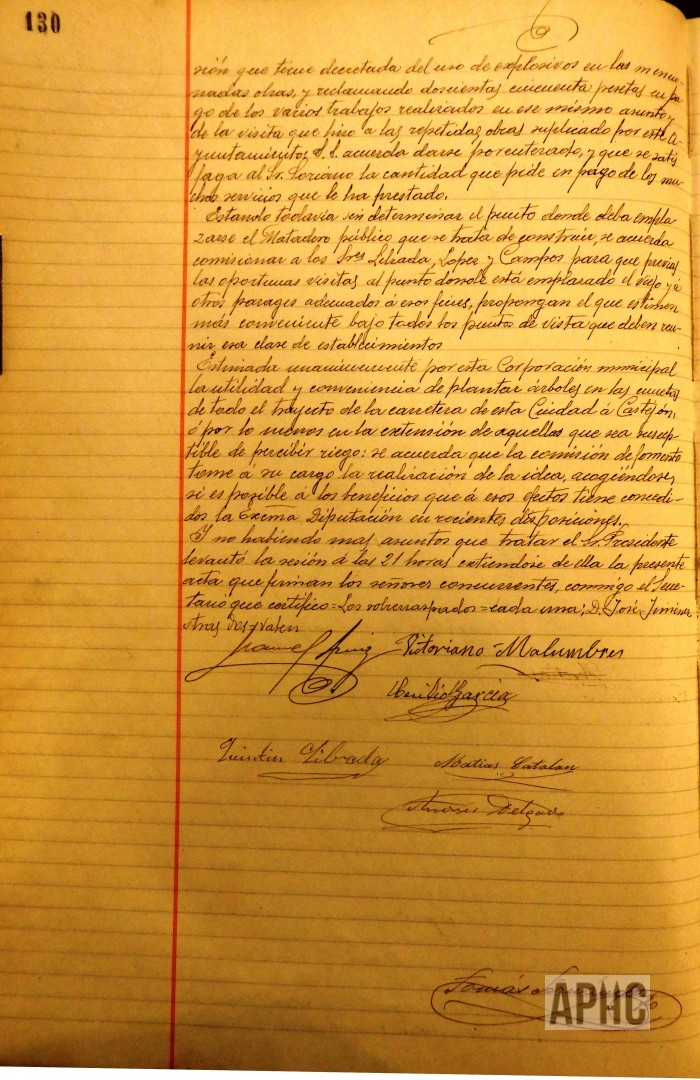 130
sión que tiene decretada del uso de explosivos en las mencio-
nadas obras, y reclamando doscientas cincuenta pesetas en pa-
go de los varios trabajos realizados en ese mismo asunto y
de la visita que hizo a las repetidas obras suplicado por este A-
yuntamiento; S.S. acuerda darse por enterado, y que se satis-
faga al Sr. Soriano la cantidad que pide en pago de los mu-
chos servicios que le ha prestado.
Estando todavia sin determinar el punto donde deba empla-
zarse el Matadero público que se trata de construir, se acuerda
comisionar a los Sres Librada, Lopez y Campos para que previas
las oportunas visitas al punto donde está emplazado el viejo y á
otros parages adecuados á esos fines, propongan el que estimen
más conveniente bajo todos los puntos de vista que deben reu-
nir esa clase de establecimientos
Estimada unanimemente por esta Corporación municipal
la utilidad y conveniencia de plantar árboles en las cunetas
de todo el trayecto de la carretera de esta Ciudad á Castejón,
ó por lo menos en la extensión de aquellas que sea suscep-
tible de percibir riego; se acuerda que la comisión de fomento
tome á su cargo la realización de la idea, acogiéndose,
si es posible á los beneficios que á esos efectos tiene concedi-
dos la Excma Diputación en recientes disposiciones.
Y no habiendo mas asuntos que tratar el Sr. Presidente
levantó la sesión á las 21 horas extiendose de ella la presente
acta que firman los señores concurrentes, conmigo el Secre-
tario que certifico = Los sobrerraspados = cada una; D. José Jimenez
otras des = valen
Victoriano Malumbres
García
Quintin Librada
Matias Catalan
Delgado
Tomás
APHC